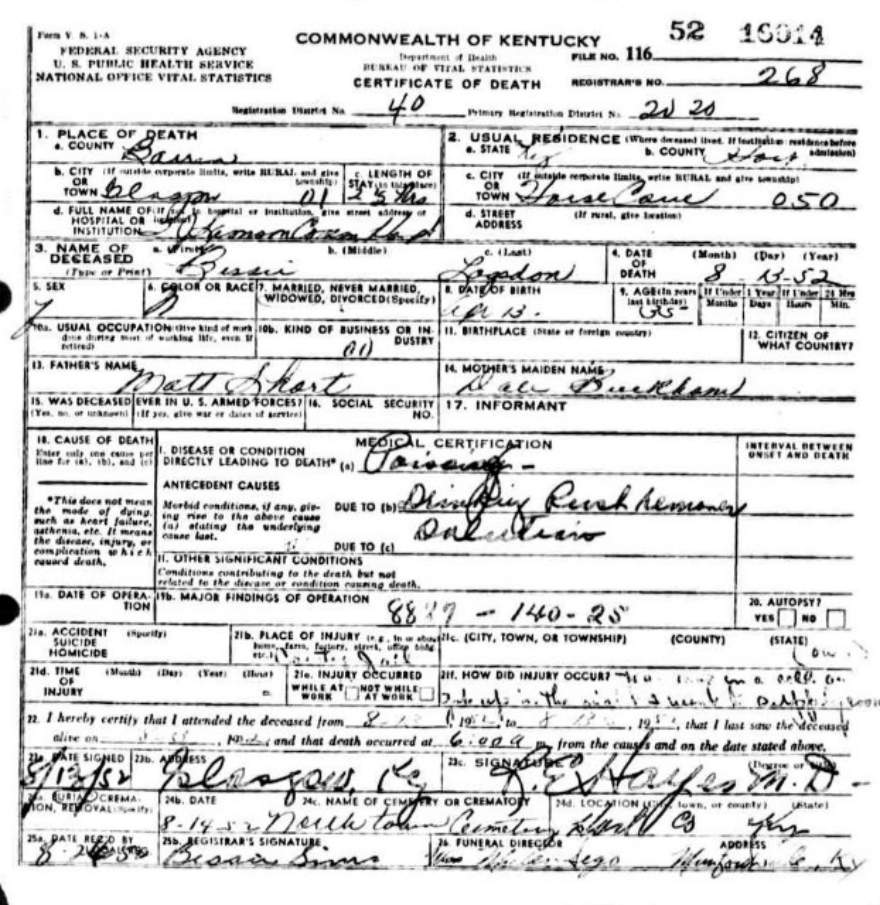 Form V. S. 1-A
FEDERAL SECURITY AGENCY
U. S. PUBLIC HEALTH SERVICE
NATIONAL OFFICE VITAL STATISTICS
COMMONWEALTH OF KENTUCKY
Department of Health
BUREAU OF VITAL STATISTICS
CERTIFICATE OF DEATH
52 16014
FILE NO. 116
REGISTRAR'S NO. 268
Registration District No. 40 Primary Registration District No. 2020
1. PLACE OF DEATH
a. COUNTY Barren
2. USUAL RESIDENCE (Where deceased lived. If institution: residence before admission)
a. STATE Ky b. COUNTY Hart
b. CITY (If outside corporate limits, write RURAL and give township)
OR TOWN Glasgow 01
c. LENGTH OF STAY (in this place)
Hrs
c. CITY (If outside corporate limits, write RURAL and give township)
OR TOWN Horse Cave 050
d. FULL NAME OF (If not in hospital or institution, give street address or location)
HOSPITAL OR INSTITUTION Hosp
d. STREET ADDRESS (If rural, give location)
3. NAME OF DECEASED (Type or Print)
a. (First) Bessie b. (Middle) c. (Last) Logsdon
4. DATE OF DEATH (Month) (Day) (Year)
8-13-52
5. SEX
6. COLOR OR RACE
7. MARRIED, NEVER MARRIED, WIDOWED, DIVORCED (Specify)
8. DATE OF BIRTH
Apr 13.
9. AGE (In years last birthday) If Under 1 Year If Under 24 Hrs
Months Days Hours Min.
10a. USUAL OCCUPATION (Give kind of work done during most of working life, even if retired)
10b. KIND OF BUSINESS OR INDUSTRY
11. BIRTHPLACE (State or foreign country)
12. CITIZEN OF WHAT COUNTRY?
13. FATHER'S NAME
Matt Short
14. MOTHER'S MAIDEN NAME
15. WAS DECEASED EVER IN U. S. ARMED FORCES?
(Yes, no, or unknown) (If yes, give war or dates of service)
16. SOCIAL SECURITY NO.
17. INFORMANT
18. CAUSE OF DEATH
Enter only one cause per line for (a), (b), and (c)
MEDICAL CERTIFICATION
INTERVAL BETWEEN ONSET AND DEATH
I. DISEASE OR CONDITION
DIRECTLY LEADING TO DEATH* (a)
*This does not mean the mode of dying, such as heart failure, asthenia, etc. It means the disease, injury, or complication which caused death.
ANTECEDENT CAUSES
Morbid conditions, if any, giving rise to the above cause (a) stating the underlying cause last.
DUE TO (b) Drinking Rust Remover
Solution
DUE TO (c)
II. OTHER SIGNIFICANT CONDITIONS
Conditions contributing to the death but not related to the disease or condition causing death.
19a. DATE OF OPERATION
19b. MAJOR FINDINGS OF OPERATION
140-25
20. AUTOPSY?
YES NO
21a. ACCIDENT (Specify)
SUICIDE
HOMICIDE
21b. PLACE OF INJURY (e.g., in or about home, farm, factory, street, office bldg., etc.)
Jail
21c. (CITY, TOWN, OR TOWNSHIP) (COUNTY) (STATE)
21d. TIME OF INJURY (Month) (Day) (Year) (Hour)
21e. INJURY OCCURRED
WHILE AT WORK NOT WHILE AT WORK
21f. HOW DID INJURY OCCUR?
22. I hereby certify that I attended the deceased from to , that I last saw the deceased
alive on , and that death occurred at 6:00 a m., from the causes and on the date stated above.
23a. DATE SIGNED
8/13/52
23b. ADDRESS
Glasgow, Ky
23c. SIGNATURE (Degree or title)
M. D.
24a. BURIAL, CREMATION, REMOVAL (Specify)
24b. DATE
8-14-52
24c. NAME OF CEMETERY OR CREMATORY
North town Cemetery
24d. LOCATION (City, town, or county) (State)
Hart Co Ky
25a. DATE REC'D BY LOCAL REG.
25b. REGISTRAR'S SIGNATURE
Bessie Sims
26. FUNERAL DIRECTOR ADDRESS
Sego Munfordville, Ky